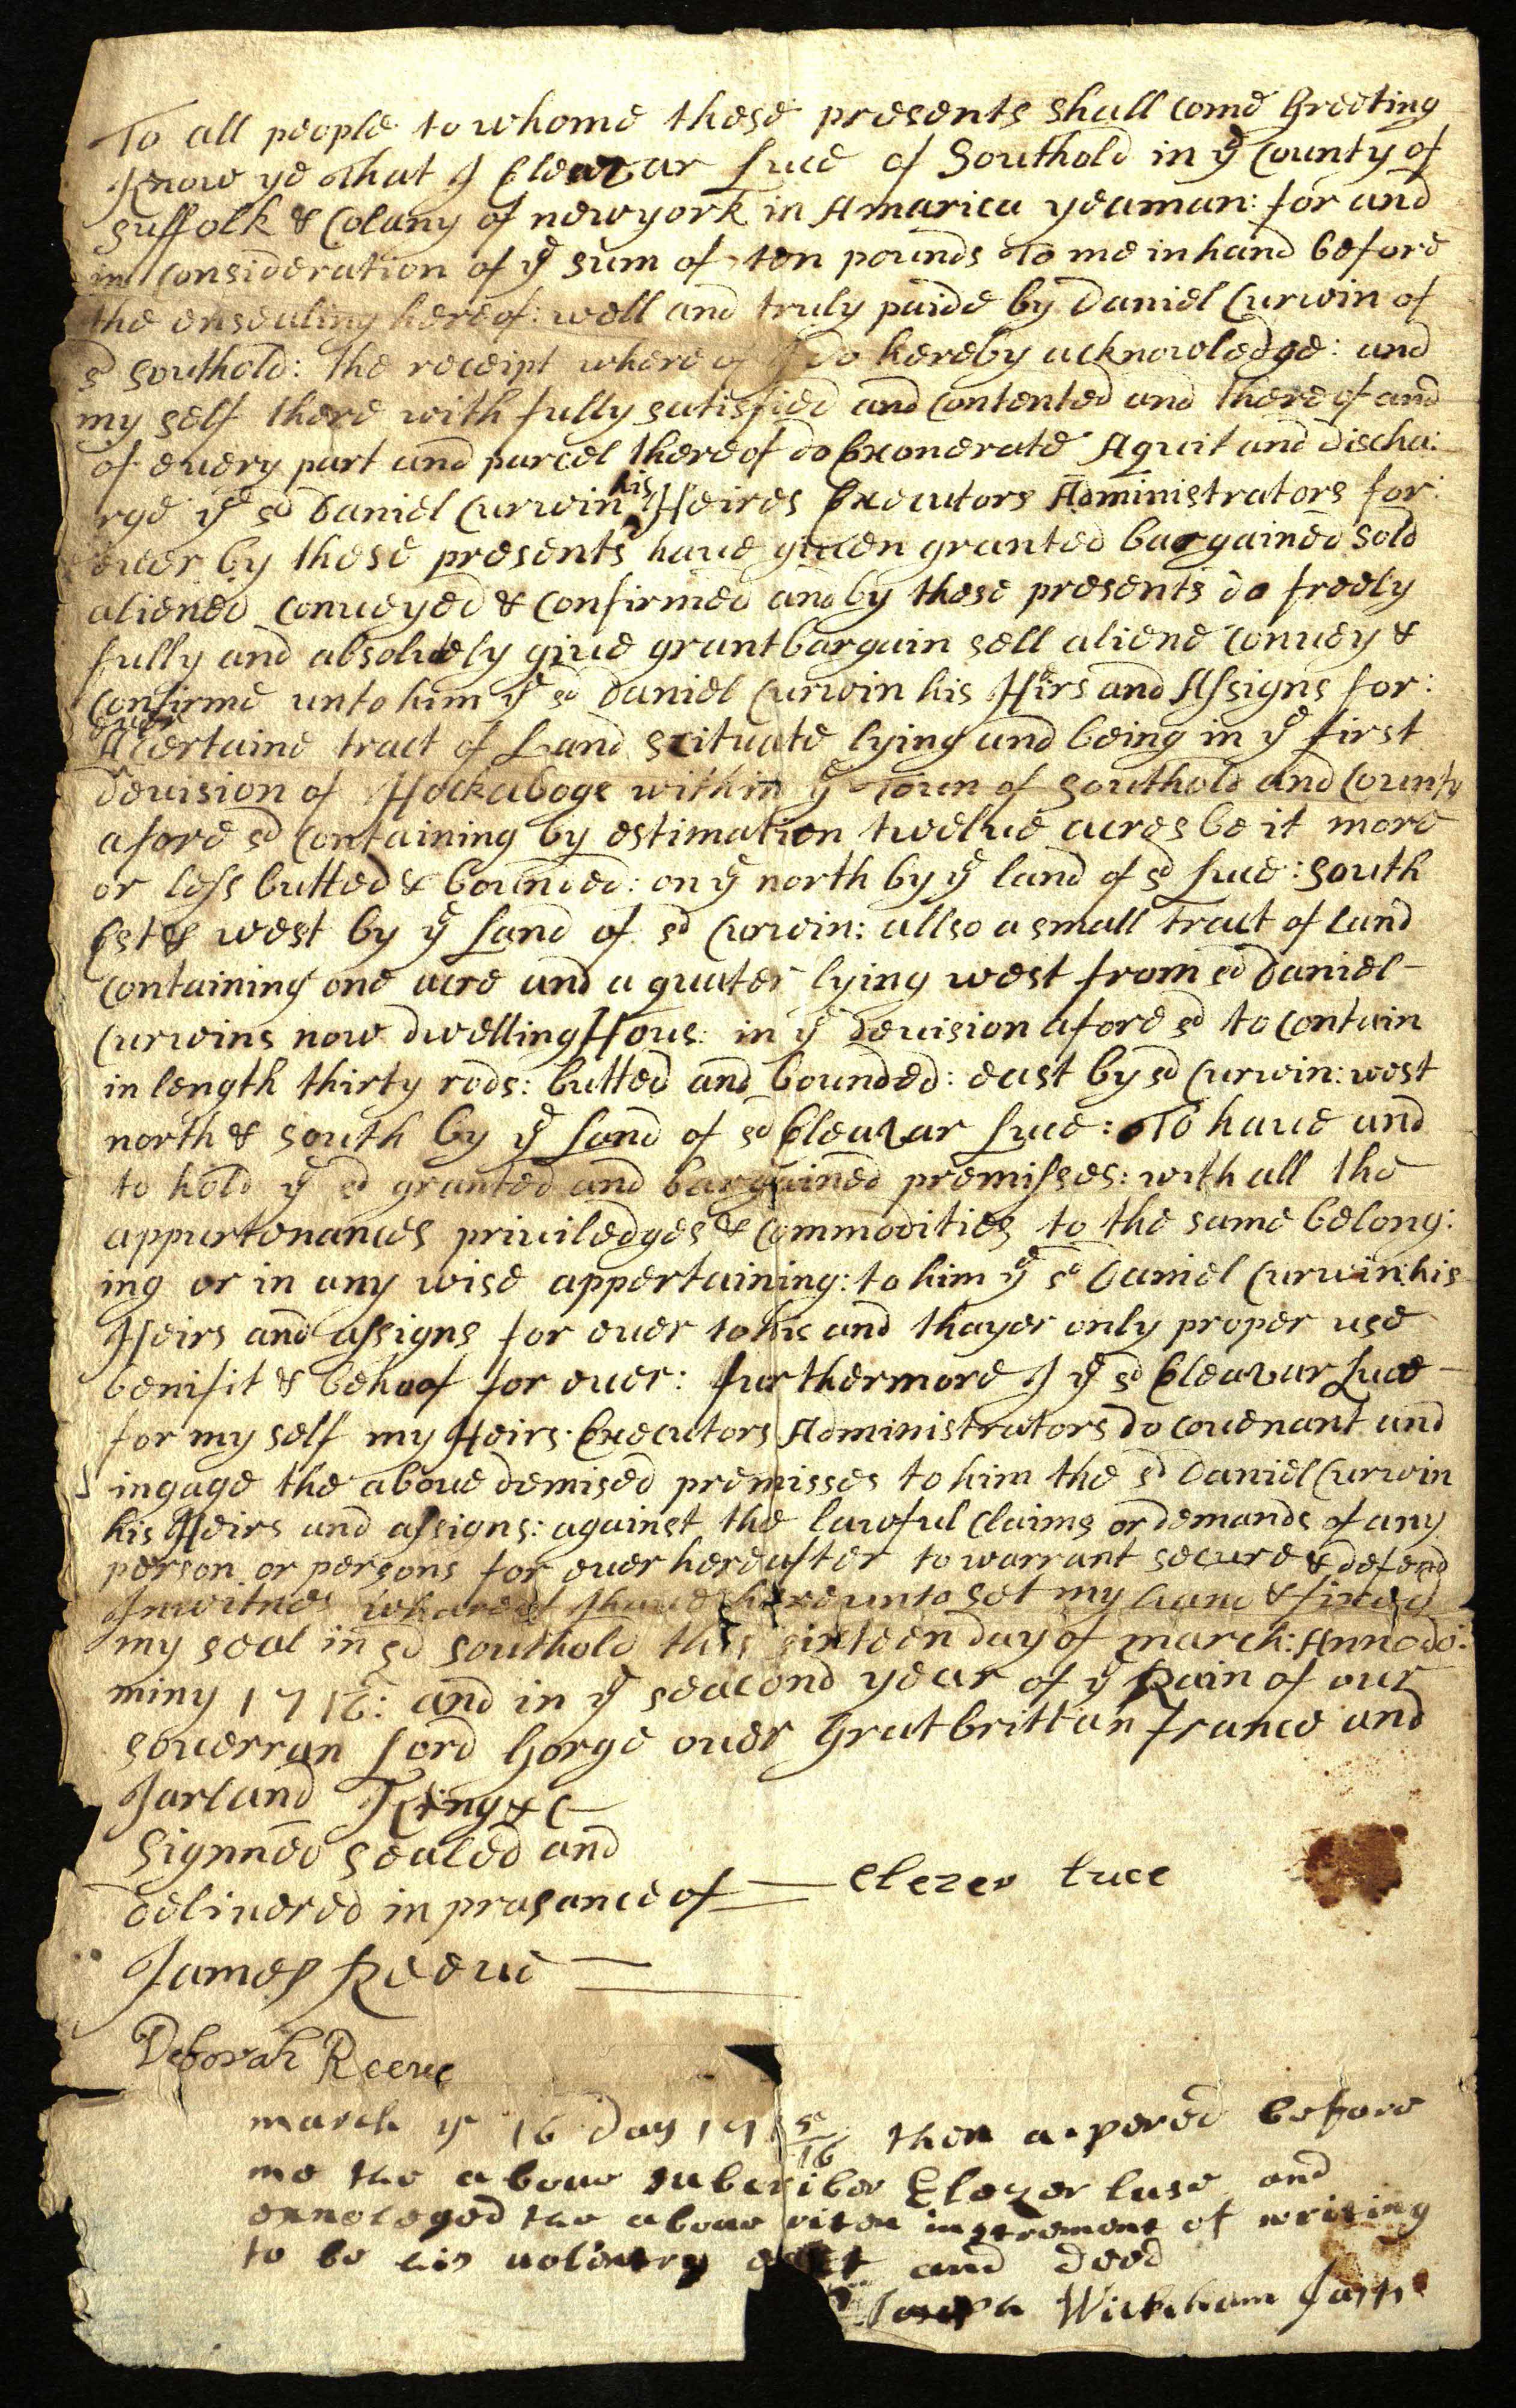 To all people to whome these presents shall come Greeting
Know ye that I Eleazar Luce of Southold in ye County of
Suffolk & Colany of newyork in Amarica yeaman: for and
in Consideration of ye sum of ten pounds to me in hand before
the ensealing hereof: well and truly paide by Daniel Curwin of
sd Southold: the receipt where of I do hereby acknowledge: and
my self there with fully satisfied and Contented and there of and
of every part and parcel thereof do Exonerate Aquit and discha:
rge ye sd Daniel Curwin his Heires Executors Administrators for:
ever by these presents have given granted bargained sold
aliened Conveyed & Confirmed and by these presents do freely
fully and absolutely give grant bargain sell aliene Convey &
Confirme unto him ye sd Daniel Curwin his Heirs and Assigns for:
ever
A Certaine tract of Land scituate lying and being in ye first
devision of Hockaboge within ye Town of Southold and County
afore sd Containing by estimation twelve acres be it more
or less butted & bounded: on ye north by ye land of sd Luce: South
Est & west by ye Land of sd Curwin: allso a small tract of land
Containing one acre and a quater lying west from sd Daniel
Curwins now dwelling Hous: in ye devision afore sd to Contain
in length thirty rods: butted and bounded: east by sd Curwin: west
north & south by ye Land of sd Eleazar Luce: To have and
to hold ye sd granted and bargained premisses: with all the
appurtenances priviledges & Commodities to the same belong:
ing or in any wise appertaining: to him ye sd Daniel Curwin his
Heirs and assigns for ever to his and thayer only proper use
benifit & behoof for ever: furthermore I ye sd Eleazar Luce
for my self my Heirs Executors Administrators do Covenant and
ingage the above demised premisses to him the sd Daniel Curwin
his Heirs and assigns: against the lawful Claims or demands of any
person or persons for ever hereafter to warrant secure & defend
In witnes whareof I have hereunto set my hand & fixed
my seal in sd Southold this sixteen day of march: Anno do:
miny 1716: and in ye seacond year of ye Rain of our
Soverran Lord Gorge over Gratbrittan France and
Jarland King & C
Signned sealed and
delivered in prasance of
Elezer Luce
James Reeve
Deborah Reeve
march ye 16 day 171 5/16 then apered before
me the above subscriber Elezer luse and
ennoleged the above riten instrement of writing
to be his volentry act and deed
Joseph Wickham Justs